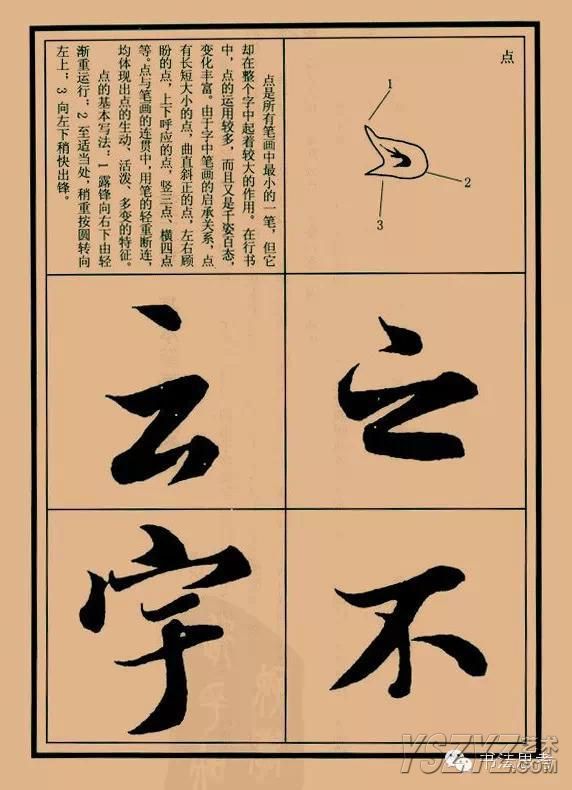 点
1
2
3
点是所有笔画中最小的一笔，但它
却在整个字中起着较大的作用。在行书
中，点的运用较多，而且又是千姿百态，
变化丰富。由于字中笔画的启承关系，点
有长短大小的点，曲直斜正的点，左右顾
盼的点，上下呼应的点，竖三点、横四点
等。点与笔画的连贯中，用笔的轻重断连，
均体现出点的生动、活泼、多变的特征。
点的基本写法：1 露锋向右下由轻
渐重运行；2 至适当处，稍重按圆转向
左上；3 向左下稍快出锋。
之
云
不
宇
艺术
.com
书法思考